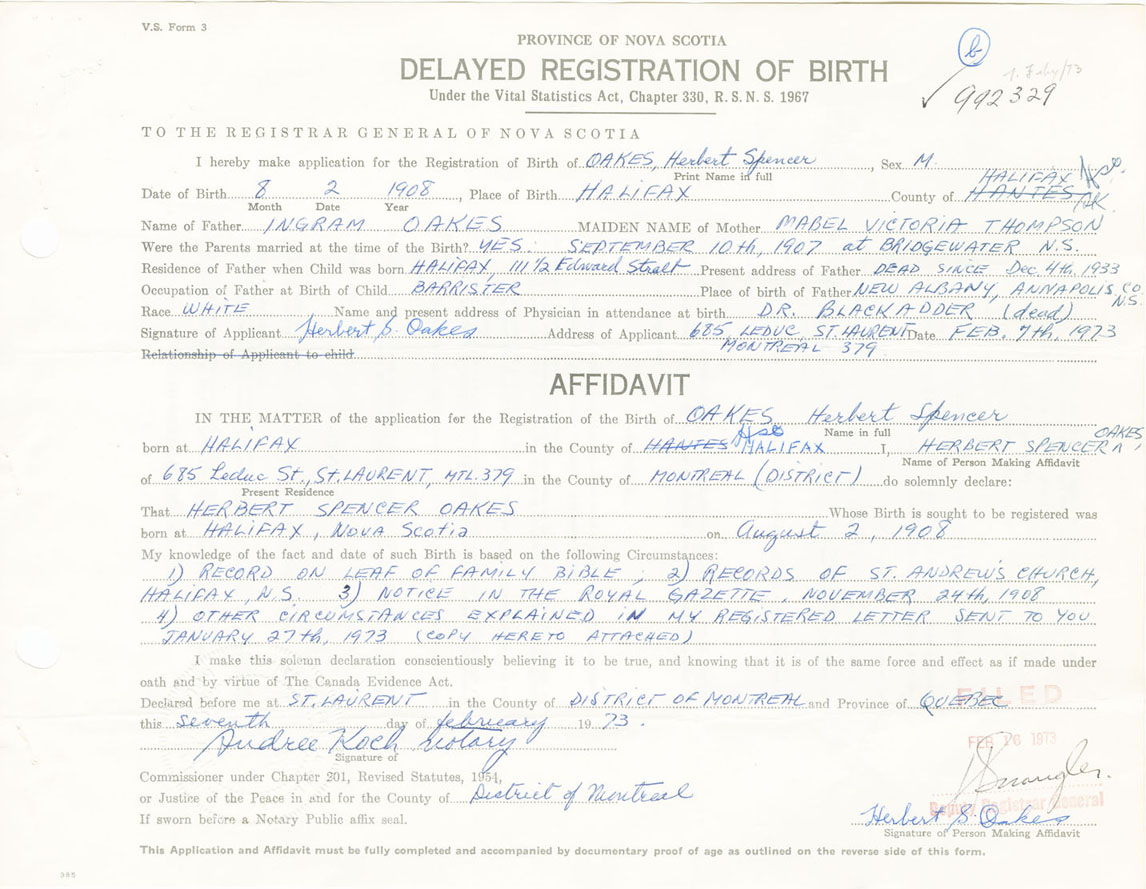 V.S. Form 3
PROVINCE OF NOVA SCOTIA
b
DELAYED REGISTRATION OF BIRTH
Under the Vital Statistics Act, Chapter 330, R. S. N. S. 1967
992329
TO THE REGISTRAR GENERAL OF NOVA SCOTIA
I hereby make application for the Registration of Birth of OAKES, Herbert Spencer, Sex M.
Print Name in full
HALIFAX Hso.
Date of Birth 8 2 1908, Place of Birth HALIFAX County of HANTES
Month Date Year
Name of Father INGRAM OAKES MAIDEN NAME of Mother MABEL VICTORIA THOMPSON
Were the Parents married at the time of the Birth? YES: SEPTEMBER 10th, 1907 at BRIDGEWATER N.S.
Residence of Father when Child was born HALIFAX, 111 1/2 Edward Straet Present address of Father DEAD SINCE Dec. 4th, 1933
Occupation of Father at Birth of Child BARRISTER Place of birth of Father NEW ALBANY, ANNAPOLIS CO N.S.
Race WHITE Name and present address of Physician in attendance at birth DR. BLACKADDER (dead)
Signature of Applicant Herbert S. Oakes Address of Applicant 685, LEDUC, ST. LAURENT Date FEB. 7th, 1973
Relationship of Applicant to child MONTREAL 379
AFFIDAVIT
IN THE MATTER of the application for the Registration of the Birth of OAKES Herbert Spencer
Name in full
born at HALIFAX in the County of HANTES Hso HALIFAX I, HERBERT SPENCER OAKES,
Name of Person Making Affidavit
of 685 Leduc St., ST. LAURENT, MTL. 379 in the County of MONTREAL (DISTRICT) do solemnly declare:
Present Residence
That HERBERT SPENCER OAKES Whose Birth is sought to be registered was
born at HALIFAX, NOVA Scotia on August 2, 1908
My knowledge of the fact and date of such Birth is based on the following Circumstances:
1) RECORD ON LEAF OF FAMILY BIBLE; 2) RECORDS OF ST. ANDREW'S CHURCH,
HALIFAX, N.S. 3) NOTICE IN THE ROYAL GAZETTE, NOVEMBER 24th, 1908
4) OTHER CIRCUMSTANCES EXPLAINED IN MY REGISTERED LETTER SENT TO YOU
JANUARY 27th, 1973 (COPY HERETO ATTACHED)
I make this solemn declaration conscientiously believing it to be true, and knowing that it is of the same force and effect as if made under
oath and by virtue of The Canada Evidence Act.
Declared before me at ST. LAURENT in the County of DISTRICT OF MONTREAL and Province of QUEBEC
FILED
this seventh day of february 1973.
FEB 16 1973
Andree Koch notary
Signature of
Commissioner under Chapter 201, Revised Statutes, 1954,
or Justice of the Peace in and for the County of District of Montreal
Deputy Registrar General
If sworn before a Notary Public affix seal.
Herbert S. Oakes
Signature of Person Making Affidavit
This Application and Affidavit must be fully completed and accompanied by documentary proof of age as outlined on the reverse side of this form.
385